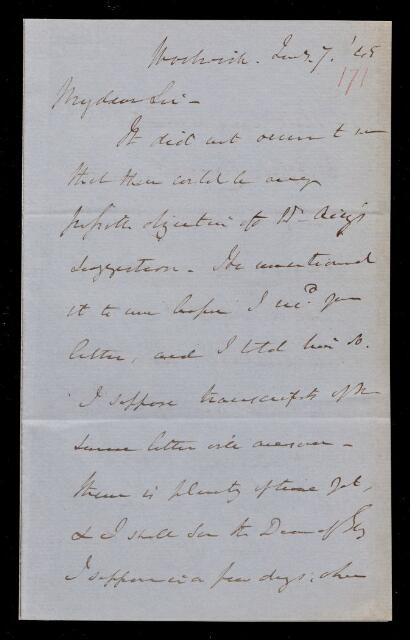 Woolwich. Jan 7. '45
171
My dear Sir -
It did not occur to me
that there could be any
possible objection to Mr Airy's
suggestion - He mentioned
it to me before I recd your
letter, and I told him so.
I suppose transcripts of the
same letter will answer -
there is plenty of time yet,
& I shall see the Dean of Ely
I suppose in a few days; when